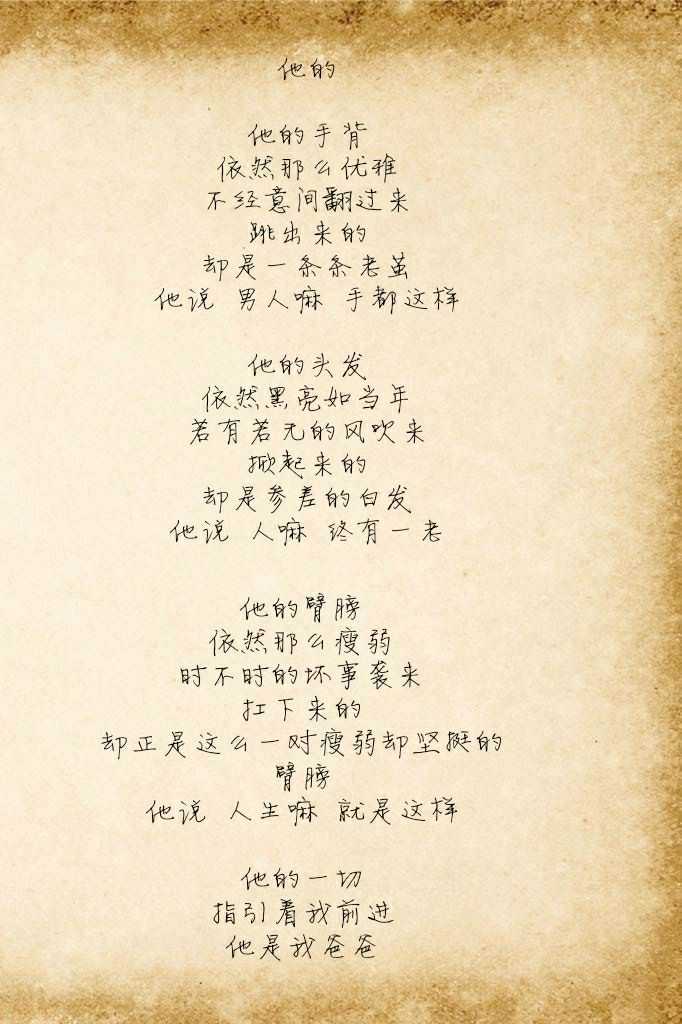 他的
他的手背
依然那么优雅
不经意间翻过来
跳出来的
却是一条条老茧
他说 男人嘛 手都这样
他的头发
依然黑亮如当年
若有若无的风吹来
掀起来的
却是参差的白发
他说 人嘛 终有一老
他的臂膀
依然那么瘦弱
时不时的坏事袭来
扛下来的
却正是这么一对瘦弱却坚挺的
臂膀
他说 人生嘛 就是这样
他的一切
指引着我前进
他是我爸爸